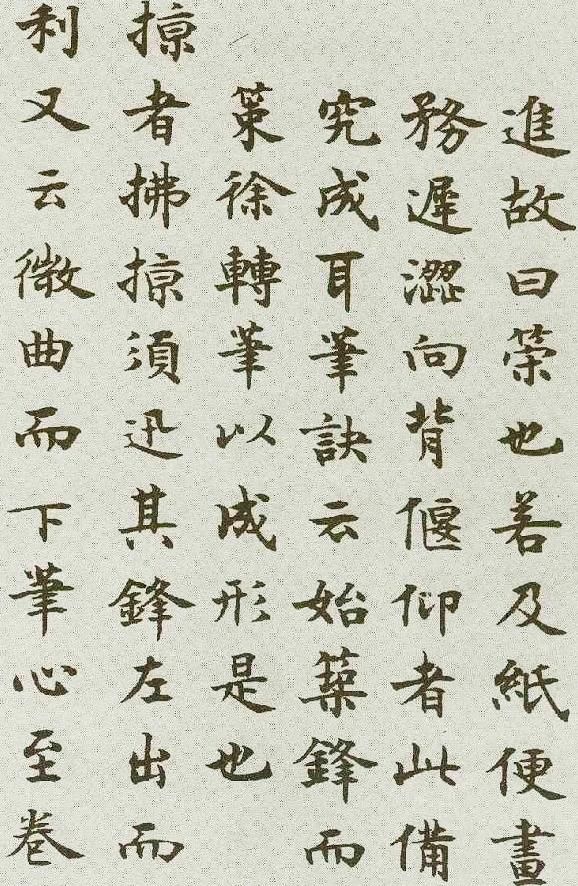 進故曰策也若及紙便畫
務遲澀向背偃仰者此備
究成耳筆訣云始築鋒而
策徐轉筆以成形是也
掠者拂掠須迅其鋒左出而
利又云微曲而下筆心至卷